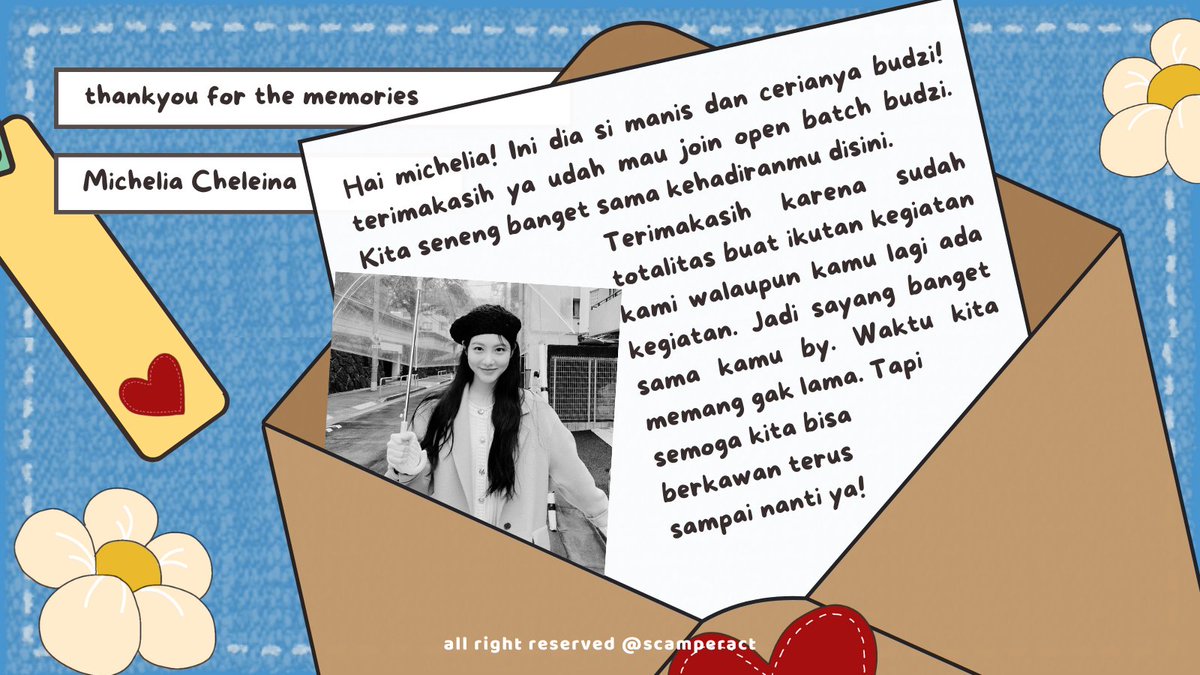 thankyou for the memories
Michelia Cheleina
Hai michelia! Ini dia si manis dan cerianya budzi!
terimakasih ya udah mau join open batch budzi.
Kita seneng banget sama kehadiranmu disini.
Terimakasih karena sudah
totalitas buat ikutan kegiatan
kami walaupun kamu lagi ada
kegiatan. Jadi sayang banget
sama kamu by. Waktu kita
memang gak lama. Tapi
semoga kita bisa
berkawan terus
sampai nanti ya!
all right reserved @scamperact